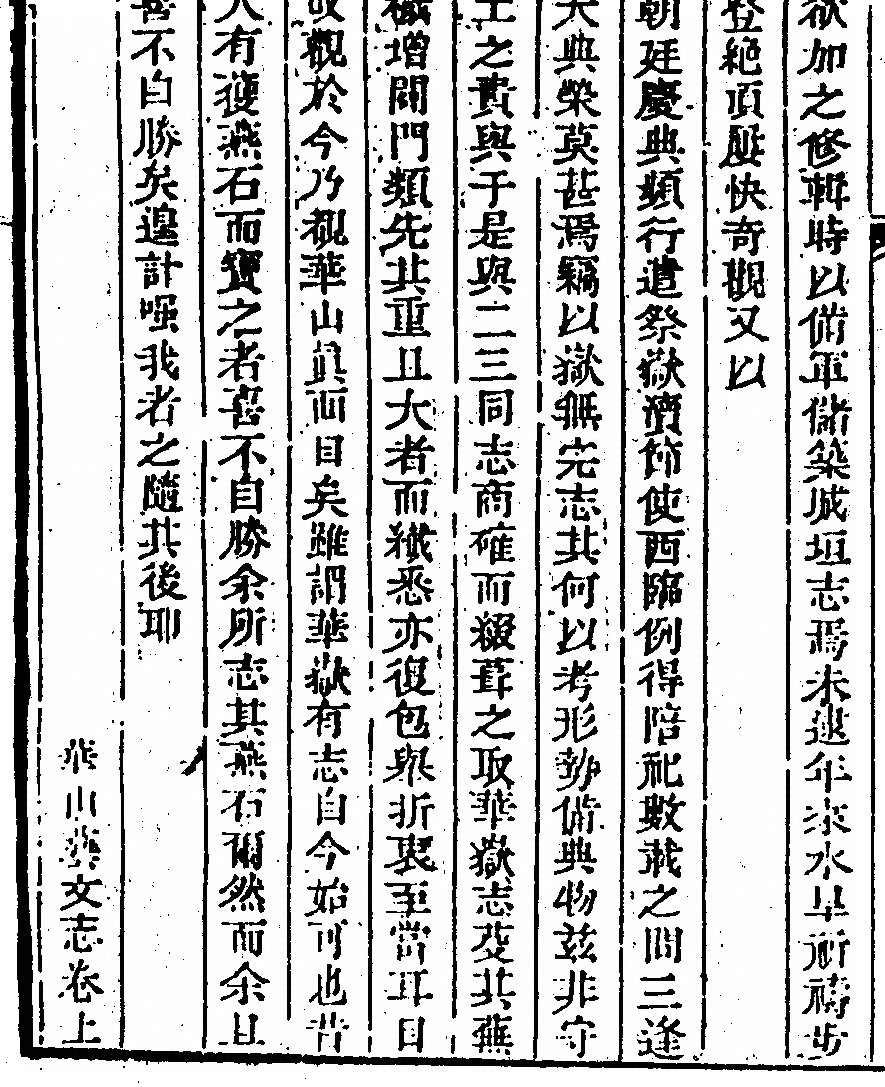 欲加之修輯時以備軍儲築城垣志焉未逮年來水旱祈禱步
登絕頂歷快奇觀又以
朝廷慶典頻行遣祭嶽瀆節使西臨例得陪祀數載之間三逢
大典榮莫甚焉竊以嶽無完志其何以考形勢備典物茲非守
土之責與于是與二三同志商確而綴葺之取華嶽志芟其蕪
穢增闢門類先其重且大者而纖悉亦復包舉折衷至當耳目
改觀於今乃覩華山真面目矣雖謂華嶽有志自今始可也昔
人有獲燕石而寶之者喜不自勝余所志其燕石爾然而余且
喜不自勝矣遑計嗤我者之隨其後耶
華山藝文志卷上